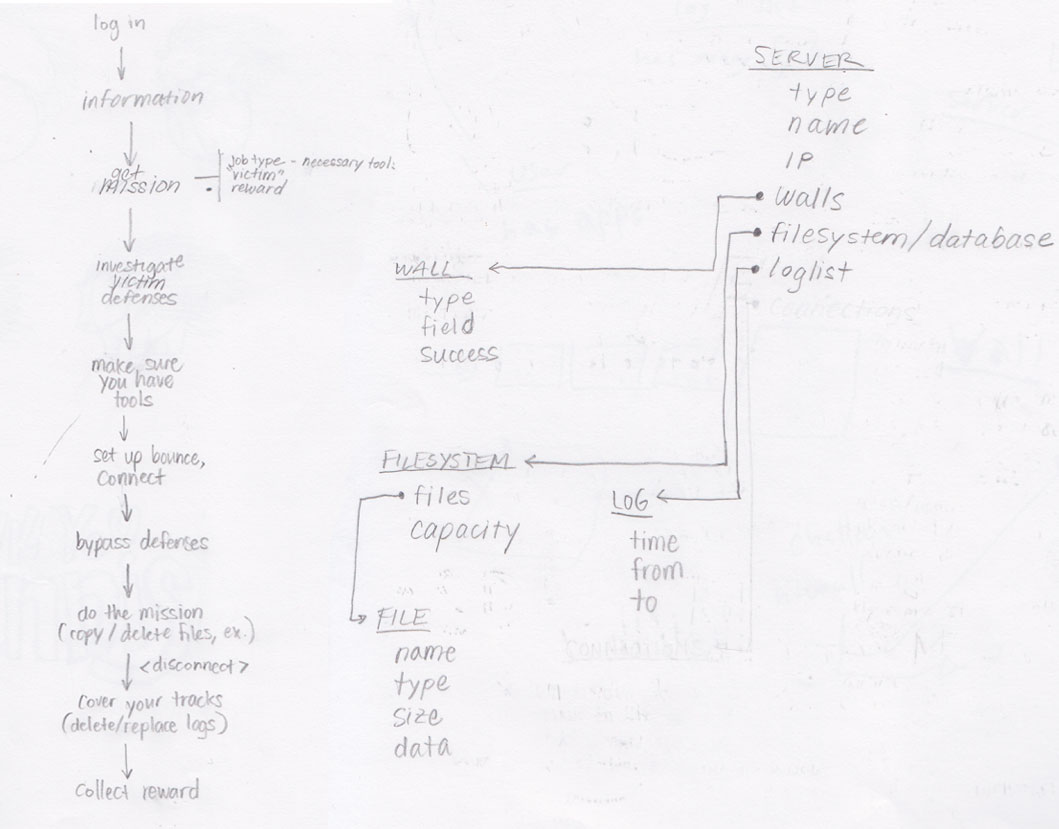 log in
information
get
mission
Job type - necessary tools
"victim"
reward
investigate
victim
defenses
make sure
you have
tools
set up bounce,
connect
bypass defenses
do the mission
(copy / delete files, ex.)
<disconnect>
cover your tracks
(delete/replace logs)
collect reward
SERVER
type
name
IP
walls
filesystem/database
loglist
connections
WALL
type
field
success
FILESYSTEM
files
capacity
LOG
time
from
to
FILE
name
type
size
data